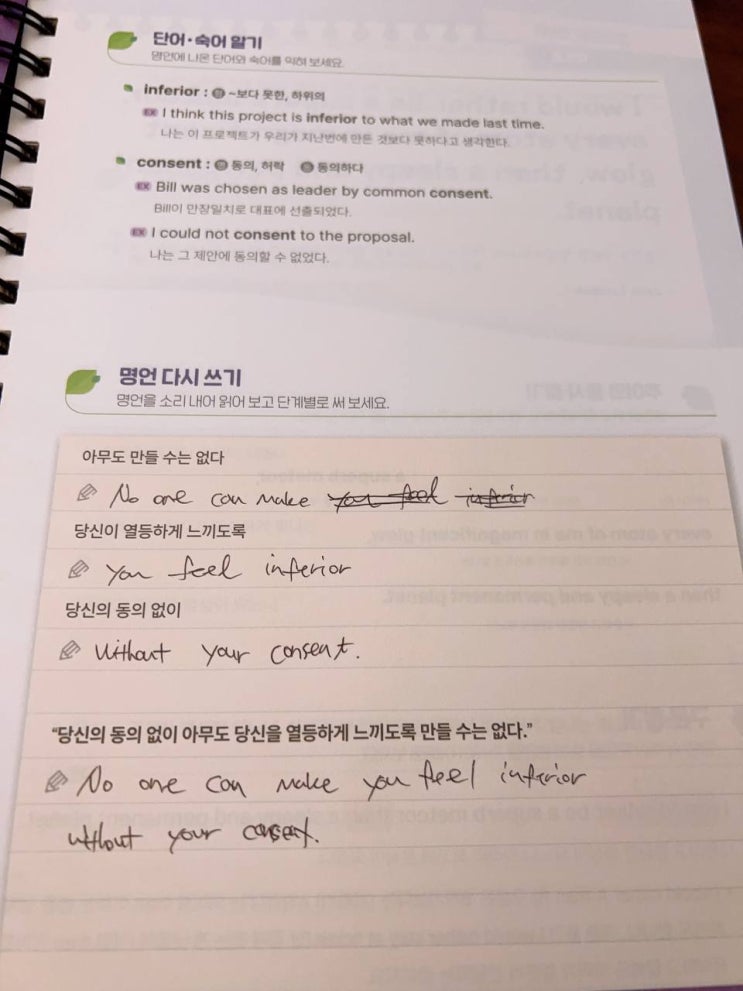 단어·숙어 알기
명언에 나온 단어와 숙어를 익혀 보세요.
inferior : 형 ~보다 못한, 하위의
EX I think this project is inferior to what we made last time.
나는 이 프로젝트가 우리가 지난번에 만든 것보다 못하다고 생각한다.
consent : 명 동의, 허락 동 동의하다
EX Bill was chosen as leader by common consent.
Bill이 만장일치로 대표에 선출되었다.
EX I could not consent to the proposal.
나는 그 제안에 동의할 수 없었다.
명언 다시 쓰기
명언을 소리 내어 읽어 보고 단계별로 써 보세요.
아무도 만들 수는 없다
No one can make you feel inferior
당신이 열등하게 느끼도록
you feel inferior
당신의 동의 없이
Without your consent.
“당신의 동의 없이 아무도 당신을 열등하게 느끼도록 만들 수는 없다.”
No one can make you feel inferior
without your consent.